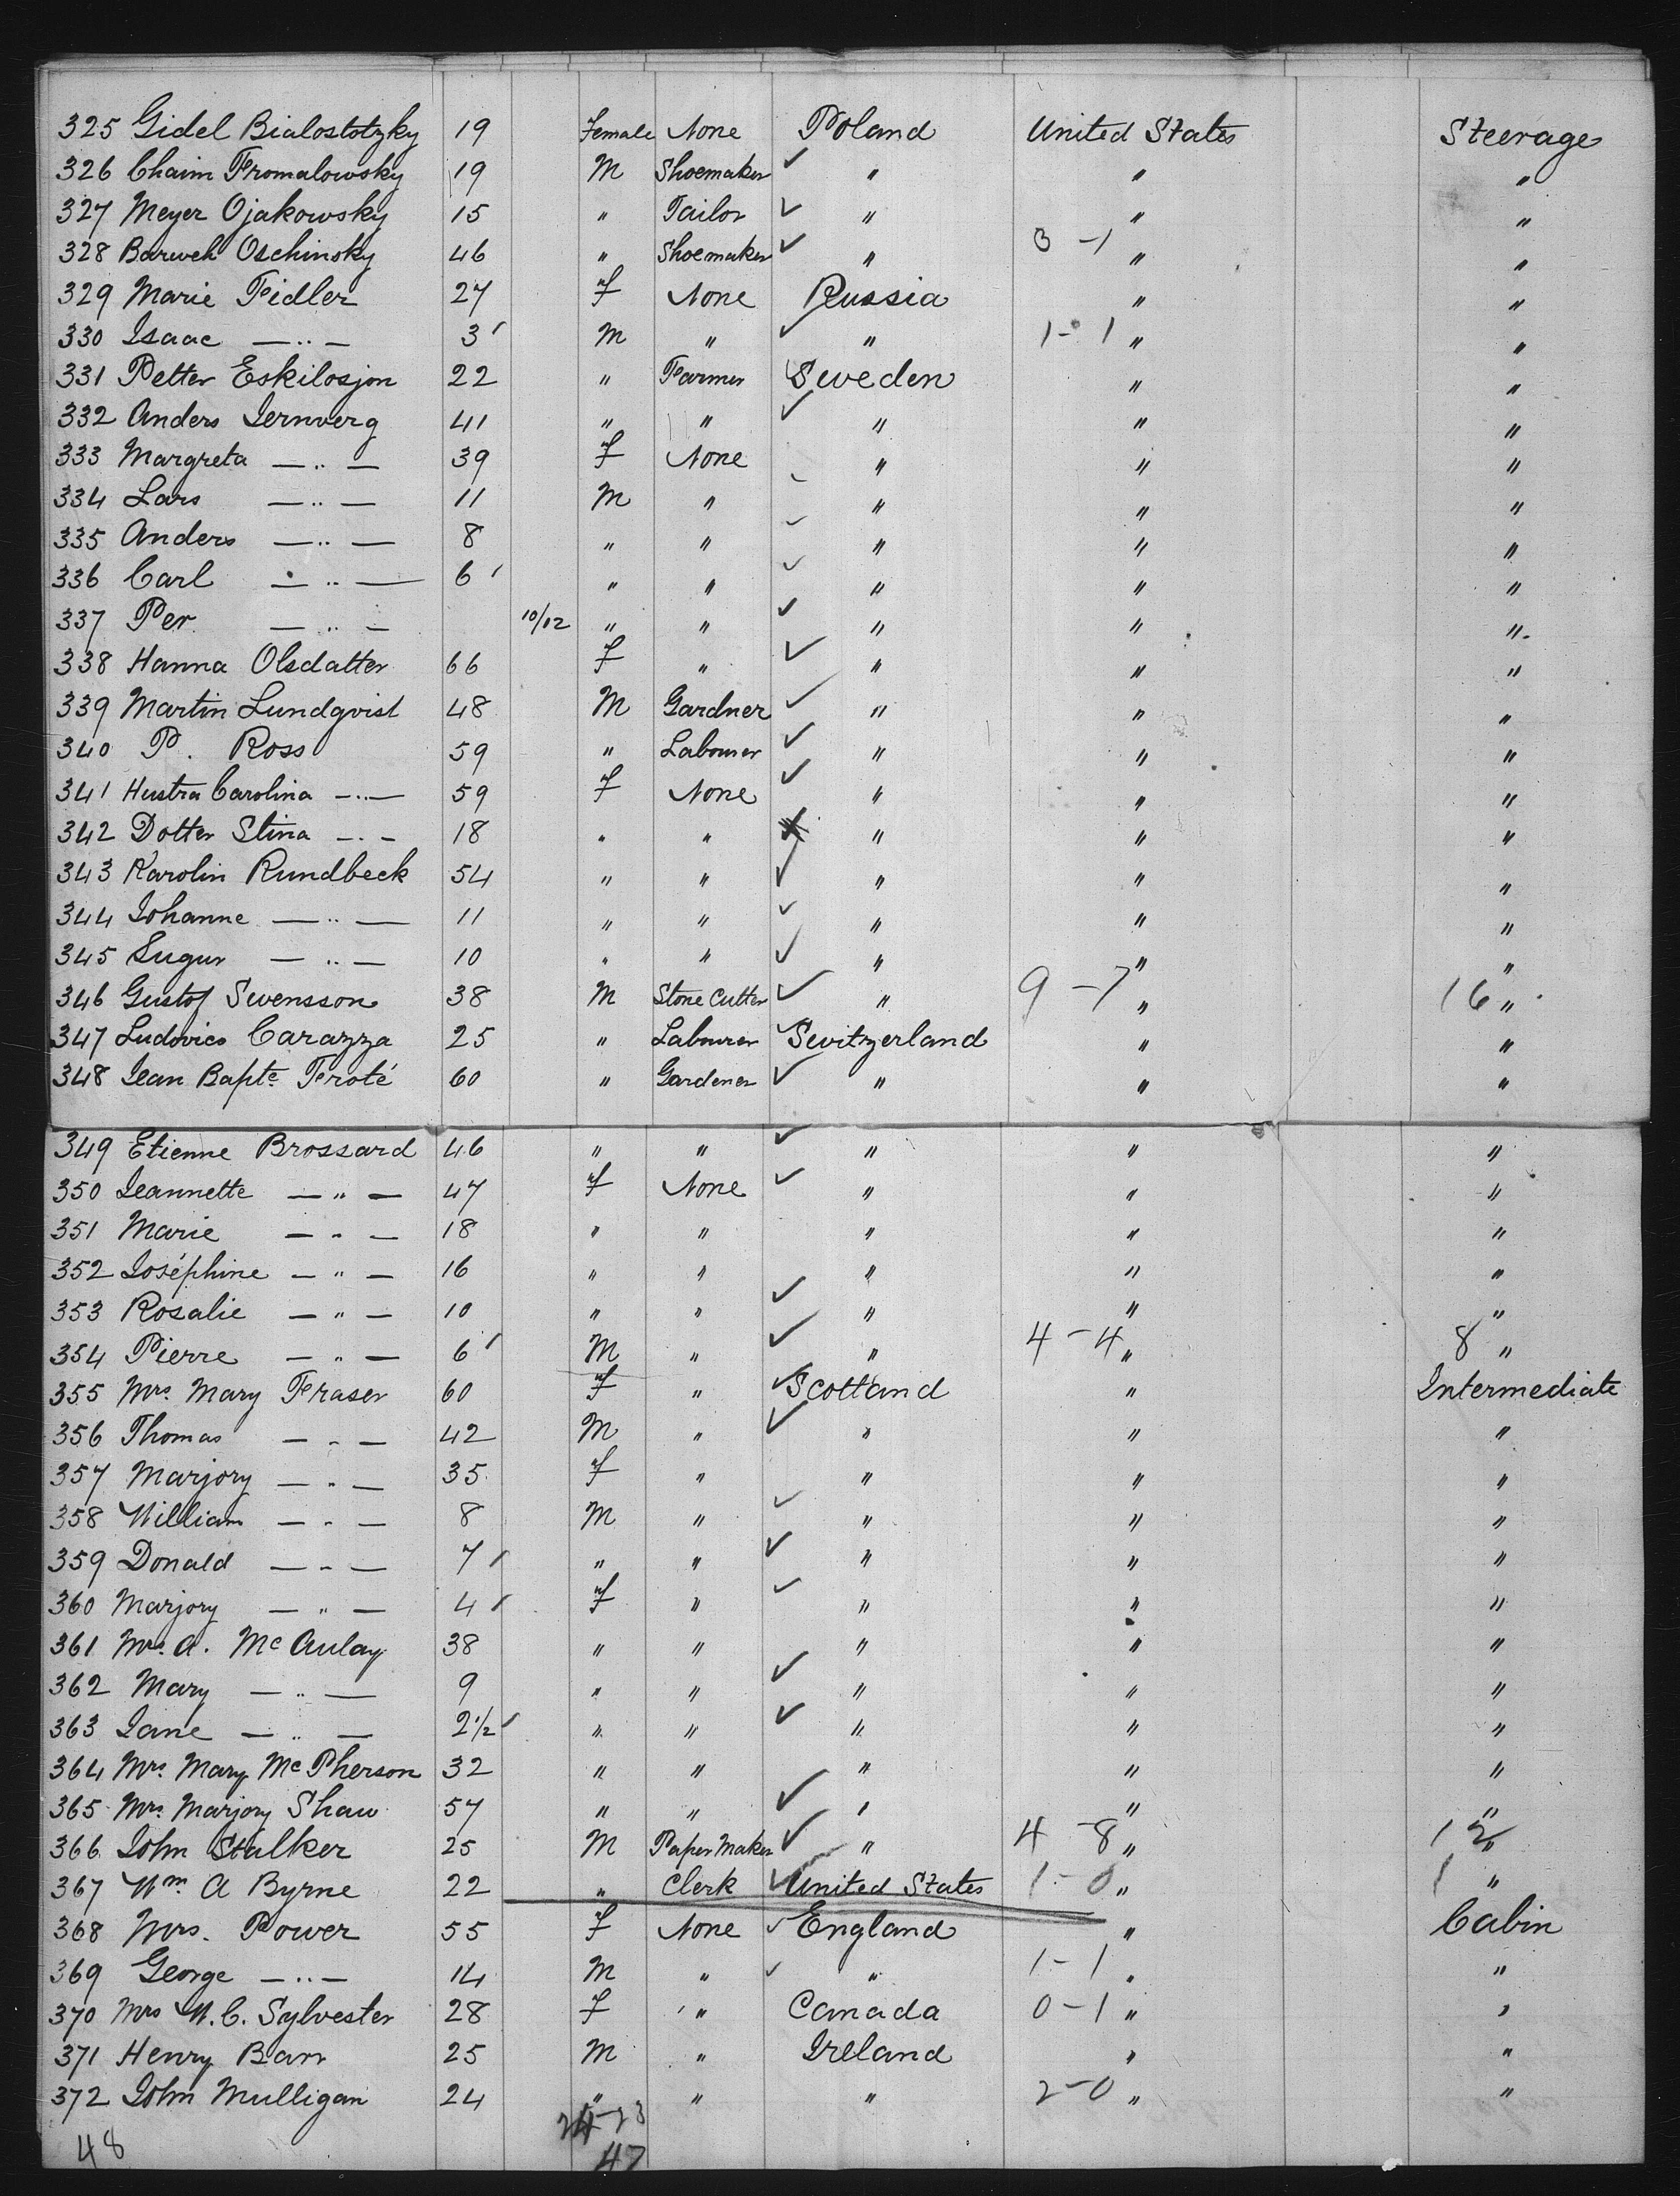 325 Gidel Bialostotzky 19 Female None Poland United States Steerage
326 Chaim Fromalowsky 19 M Shoemaker " " "
327 Meyer Ojakowsky 15 " Tailor " " "
328 Baruch Oschinsky 46 " Shoemaker " 3-1 " "
329 Marie Fidler 27 f None Russia " "
330 Isaac —"— 3 M " " 1-1 " "
331 Petter Eskilosjon 22 " Farmer Sweden " "
332 Anders Jernverg 41 " " " " "
333 Margreta —"— 39 f None " " "
334 Lars —"— 11 M " " " "
335 Anders —"— 8 " " " " "
336 Carl —"— 6 " " " " "
337 Per —"— 10/12 " " " " "
338 Hanna Olsdatter 66 f " " " "
339 Martin Lundqvist 48 M Gardner " " "
340 P. Ross 59 " Labourer " " "
341 Hustra Carolina —"— 59 f None " " "
342 Dotter Stina —"— 18 " " " " "
343 Karolin Rundbeck 54 " " " " "
344 Johanne —"— 11 " " " " "
345 —"— 10 " " " " "
346 Gustof Swensson 38 M Stone Cutter " 9-7 " 16 "
347 Ludovico Carazza 25 " Labourer Switzerland " "
348 Jean Bapte Froté 60 " Gardener " " "
349 Etienne Brossard 46 " " " " "
350 Jeannette —"— 47 f None " " "
351 Marie —"— 18 " " " " "
352 Joséphine —"— 16 " " " " "
353 Rosalie —"— 10 " " " " "
354 Pierre —"— 6 M " " 4-4 " 8 "
355 Mrs. Mary Fraser 60 f " Scotland " Intermediate
356 Thomas —"— 42 M " " " "
357 Marjory —"— 35 f " " " "
358 William —"— 8 M " " " "
359 Donald —"— 7 " " " " "
360 Marjory —"— 4 f " " " "
361 Mrs. A. McAulay 38 " " " " "
362 Mary —"— 9 " " " " "
363 Jane —"— 2½ " " " " "
364 Mrs. Mary McPherson 32 " " " " "
365 Mrs. Marjory Shaw 57 " " " " "
366 John Stalker 25 M Paper Maker " 4-8 " 12 "
367 Wm. A Byrne 22 " Clerk United States 1-0 " 1 "
368 Mrs. Power 55 f None England " Cabin
369 George —"— 14 M " " 1-1 " "
370 Mrs W. C. Sylvester 28 f " Canada 0-1 " "
371 Henry Barr 25 M " Ireland " "
372 John Mulligan 24 " " " 2-0 " "
48 24-23
47